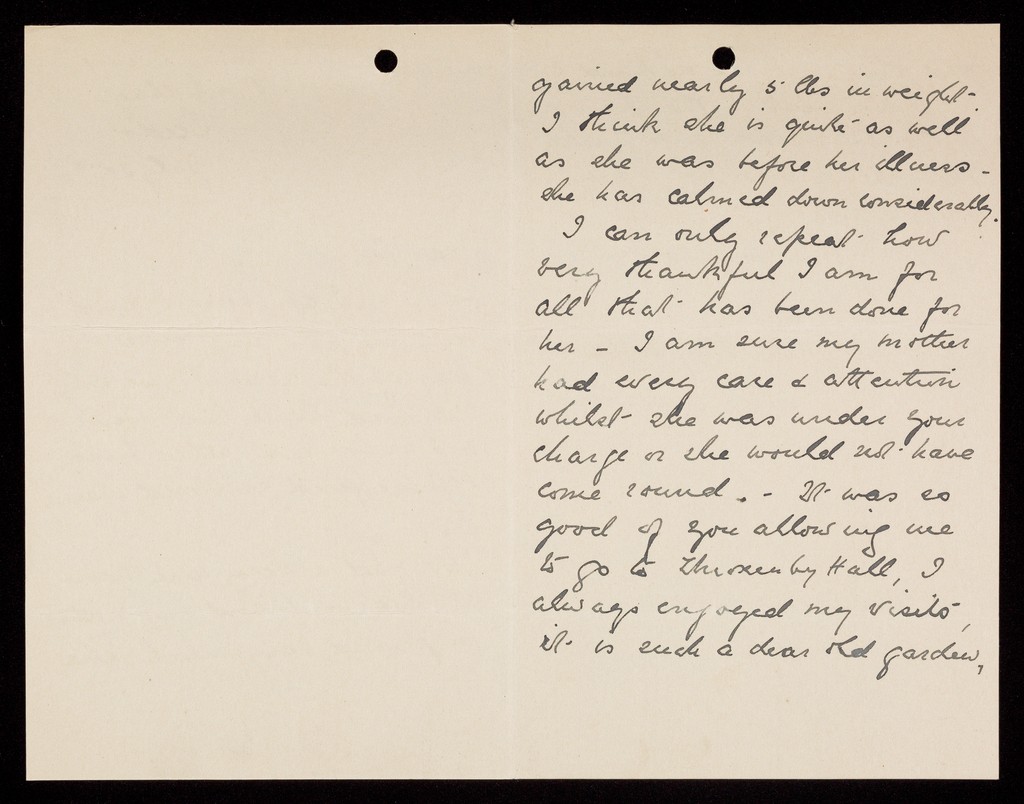 gained nearly 5 lbs in weight -
I think she is quite as well
as she was before her illness -
she has calmed down considerably.
I can only repeat how
very thankful I am for
all that has been done for
her - I am sure my mother
had every care & attention
whilst she was under your
charge or she would not have
come round. - It was so
good of you allowing me
to go to Throxenby Hall, I
always enjoyed my visits,
it is such a dear old garden,